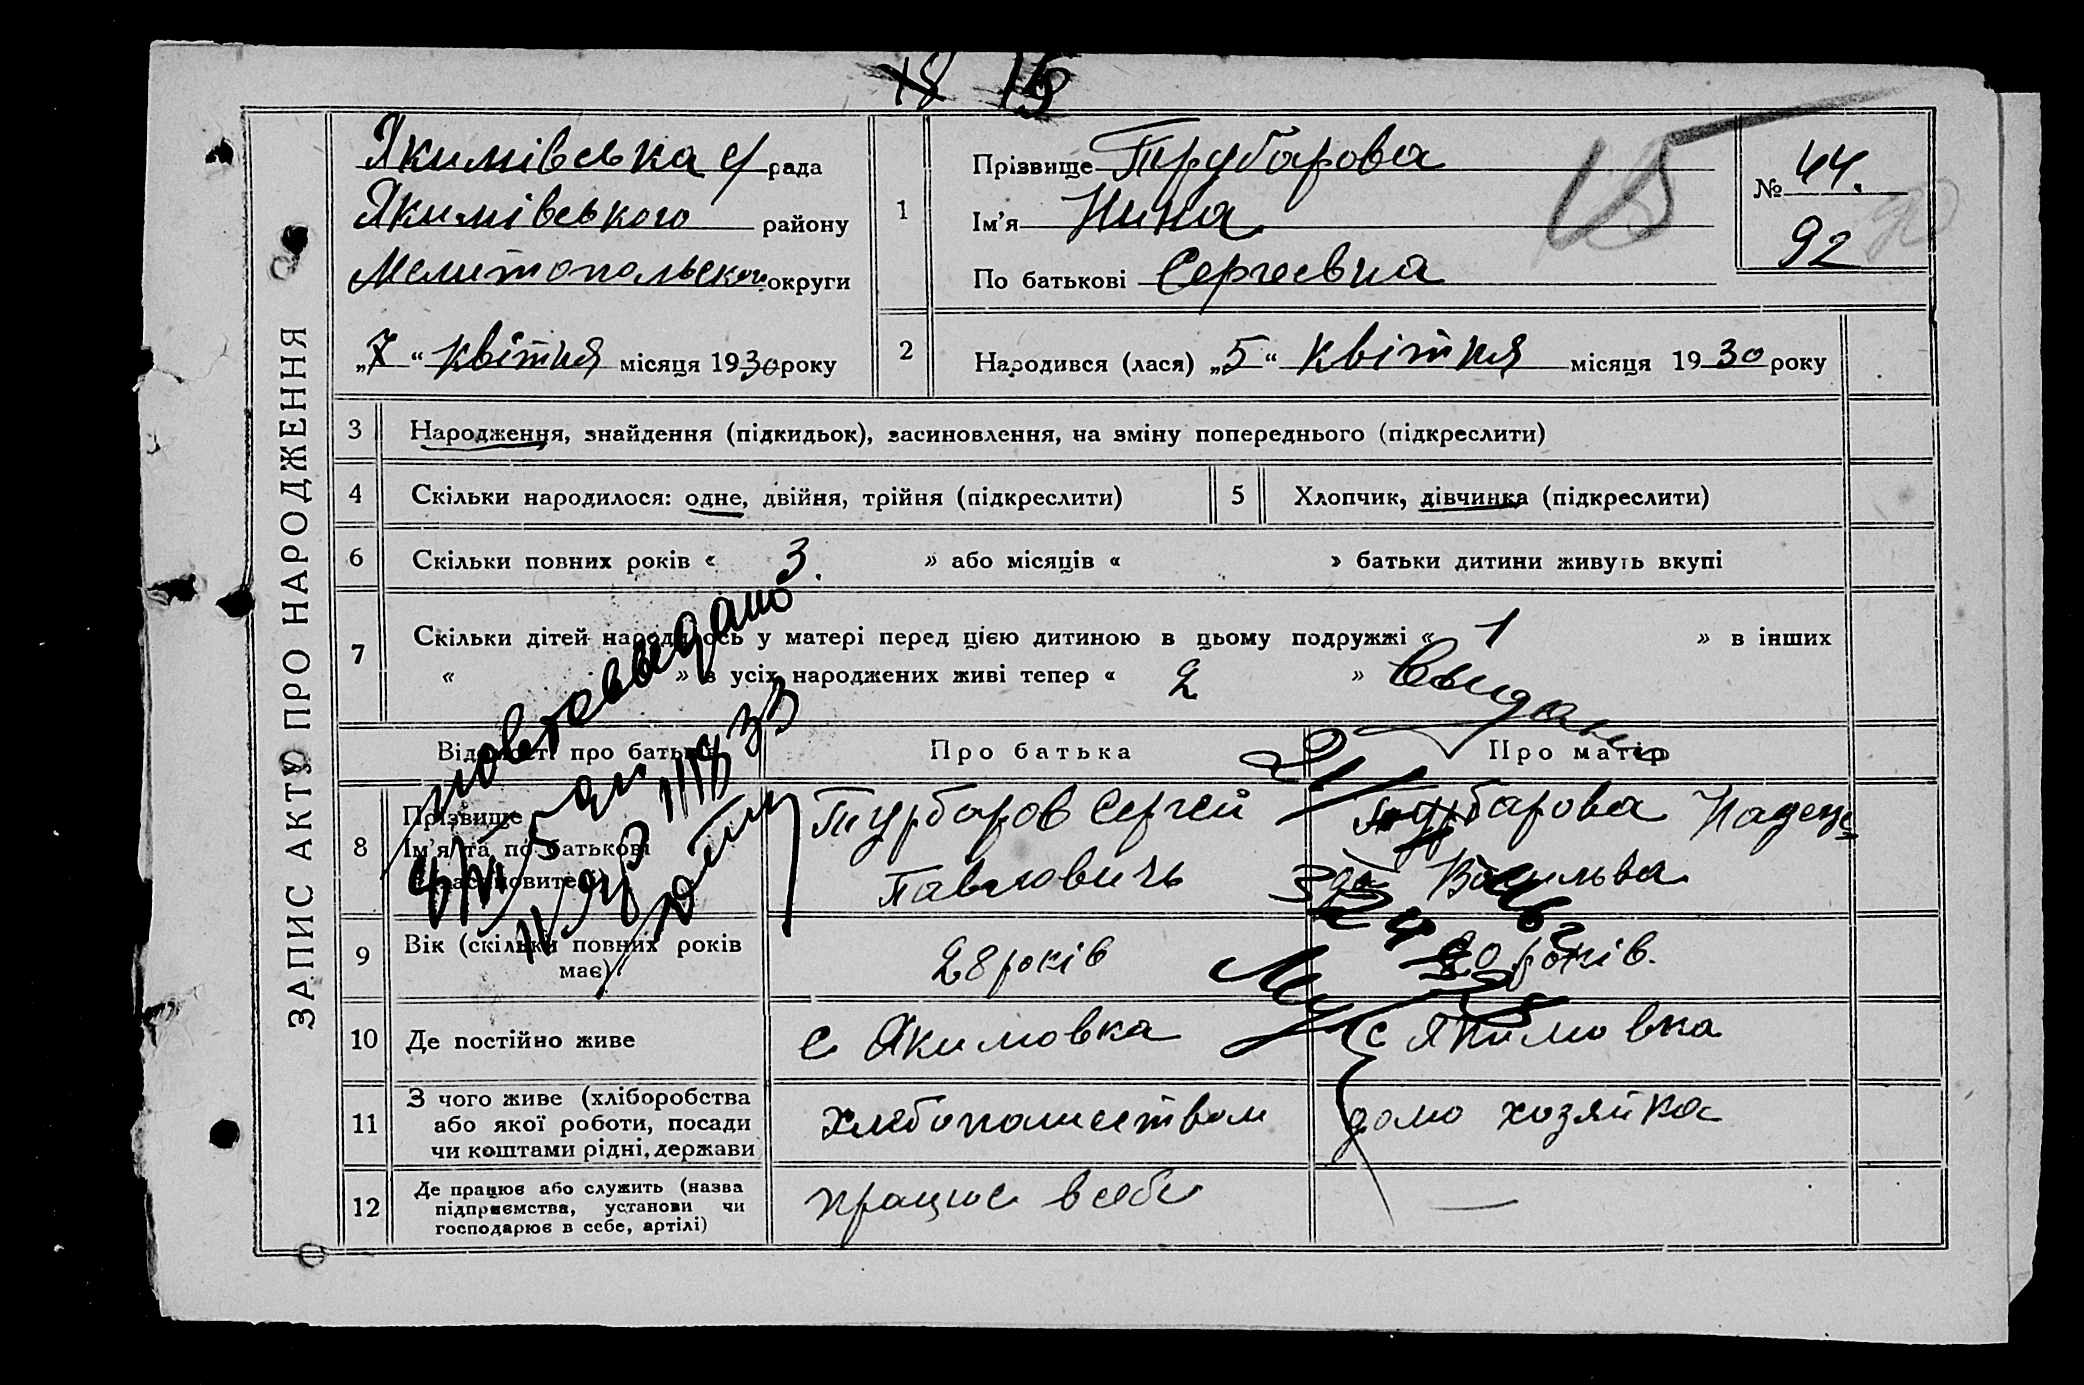 18 15
ЗАПИС АКТУ ПРО НАРОДЖЕННЯ
Якимівська с/рада
Якимівського району
Мелитопольскои округи
„7“ квітня місяця 1930 року
1
Прізвище Трубарова
Ім’я Нина
По батькові Сергеевна
15
№ 44.
92
90
2
Народився (лася) „5“ квітня місяця 1930 року
3 Народження, знайдення (підкидьок), засиновлення, на зміну попереднього (підкреслити)
4 Скільки народилося: одне, двійня, трійня (підкреслити)
5 Хлопчик, дівчинка (підкреслити)
6 Скільки повних років « 3. » або місяців « » батьки дитини живуть вкупі
7 Скільки дітей народилось у матері перед цією дитиною в цьому подружжі « 1 » в інших
« » з усіх народжених живі тепер « 2 »
повтовыдано
Выдано
Відомості про батьків
Про батька
Про матір
8 Прізвище
Ім’я та по батькові
Турбаров Сергей
Павловичь
Турбарова Надеж
да Васильва
9 Вік (скільки повних років має)
28 років
20 років.
10 Де постійно живе
с Якимовка
с Якимовка
11 З чого живе (хліборобства
або якої роботи, посади
чи коштами рідні, держави
хлебопашеством
домо хозяйка
12 Де працює або служить (назва
підприємства, установи чи
господарює в себе, артілі)
працює в себе
—